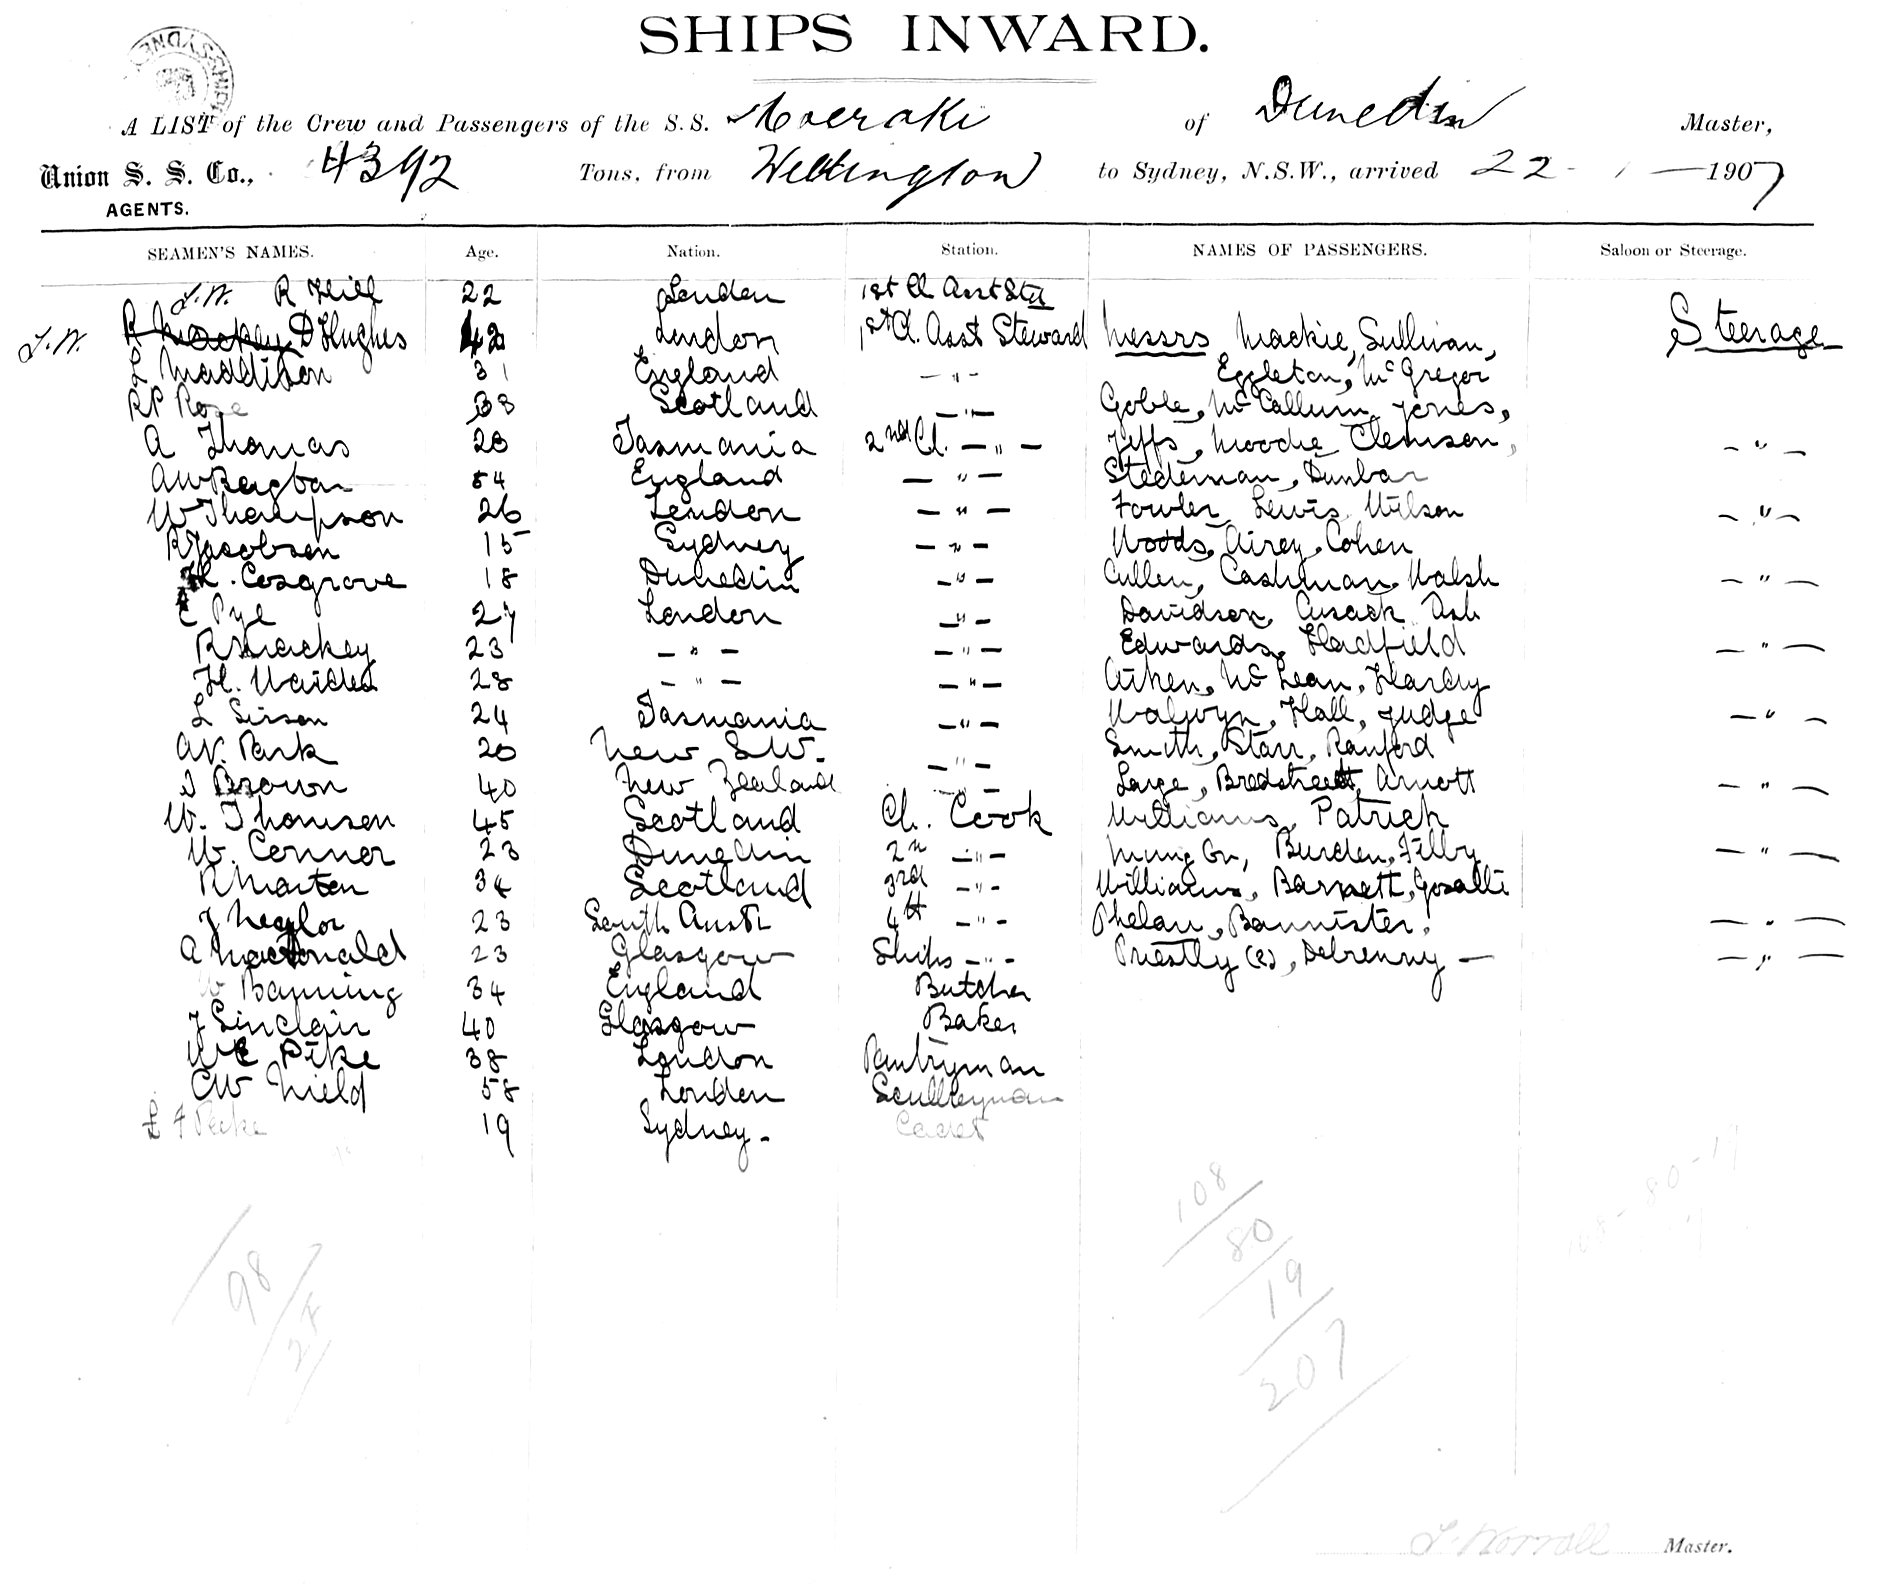 SHIPS INWARD.
A LIST of the Crew and Passengers of the S.S. Moeraki of Dunedin Master,
Union S. S. Co., 4392 Tons, from Wellington to Sydney, N.S.W., arrived 22 - 1 - 1907
AGENTS.
SEAMEN'S NAMES. Age. Nation. Station. NAMES OF PASSENGERS. Saloon or Steerage.
R Hill 22 London 1st Cl Asst Std
D Hughes 42 London 1st Cl. Asst Steward Messrs Mackie, Sullivan, Steerage
L Maddison 31 England — " — Eggleton, McGregor
RP Rose 38 Scotland — " — Goble, McCallum, Jones,
A Thomas 20 Tasmania 2nd Cl. — " — Jeffs, Moodie, Clemson, — " —
54 England — " — Stedeman, Dunbar
W Thompson 26 London — " — Fowler, Lewis, Wilson — " —
R Jacobsen 15 Sydney — " — Woods, Airey, Cohen
H. Cosgrove 18 Dunedin — " — Cullen, Cashman, Walsh — " —
E Pye 27 London — " — Davidson, Cusack, Ash
R Mackey 23 — " — — " — Edwards, Hadfield — " —
H. 28 — " — — " — Aitken, McLean, Hardy
L Sisson 24 Tasmania — " — Walwyn, Hall, Judge — " —
AV. Park 20 New S.W. — " — Smith, Starr, Ranford
Brown 40 New Zealand — " — Large, Bredstreet, Arnott — " —
W. Thomson 45 Scotland Ch. Cook Williams, Patrick
W. Conner 23 Dunedin 2n — " — Mung On, Burden, Filby — " —
R Marten 34 Scotland 3rd — " — Williams, Barnett, Gosatti
J Naylor 23 South Austr 4th — " — Phelan, Bannister, — " —
A MacDonald 23 Glasgow Ships — " — Priestly (2), Delrenny — — " —
W Banning 34 England Butcher
J Sinclair 40 Glasgow Baker
WE Pike 38 London Pantryman
CW Nield 58 London Sculleryman
19 Sydney - Cadet
108
80
98 19
25 207
Master.